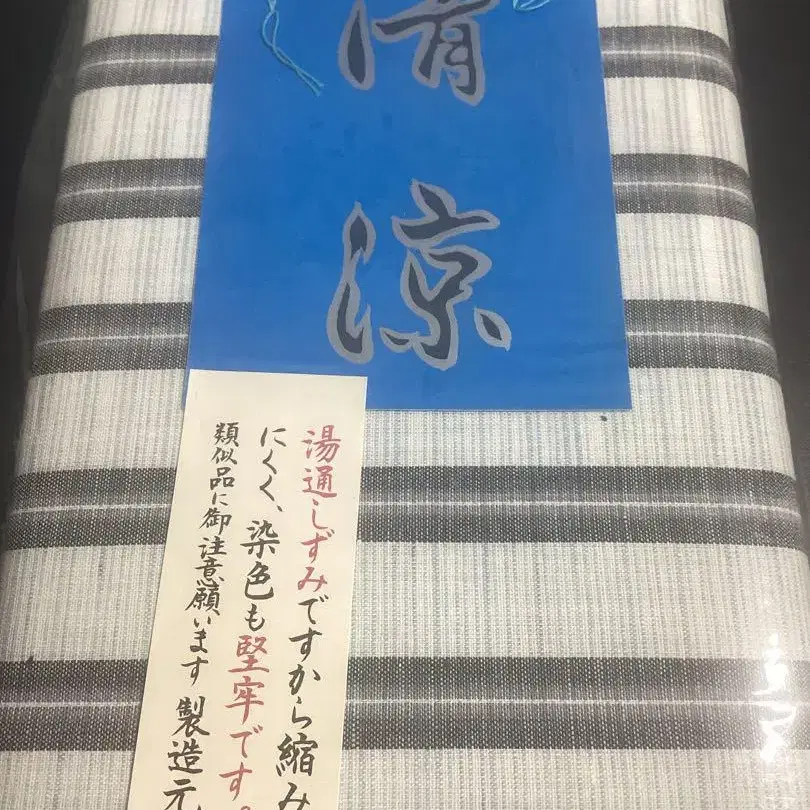 清涼
湯通しずみですから縮み
にくく、染色も堅牢です。
類似品に御注意願います 製造元